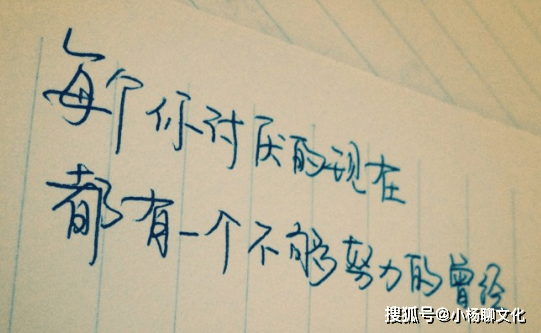 每个你讨厌的现在
都有一个不够努力的曾经
搜狐号@小杨聊文化